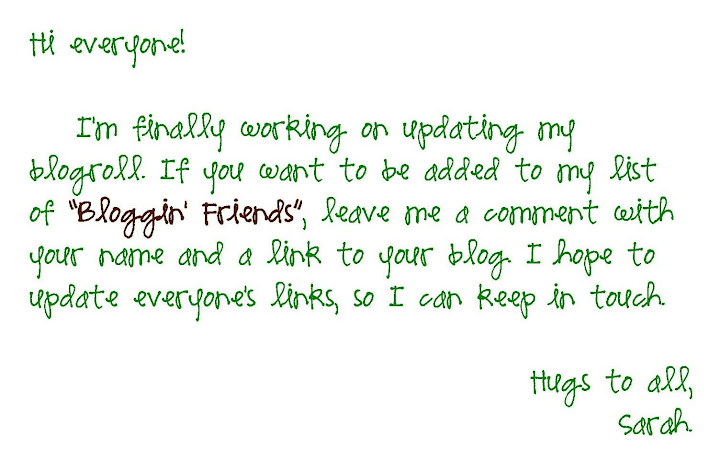 Hi everyone!
I'm finally working on updating my
blogroll. If you want to be added to my list
of "Bloggin' Friends", leave me a comment with
your name and a link to your blog. I hope to
update everyone's links, so I can keep in touch.
Hugs to all,
Sarah.